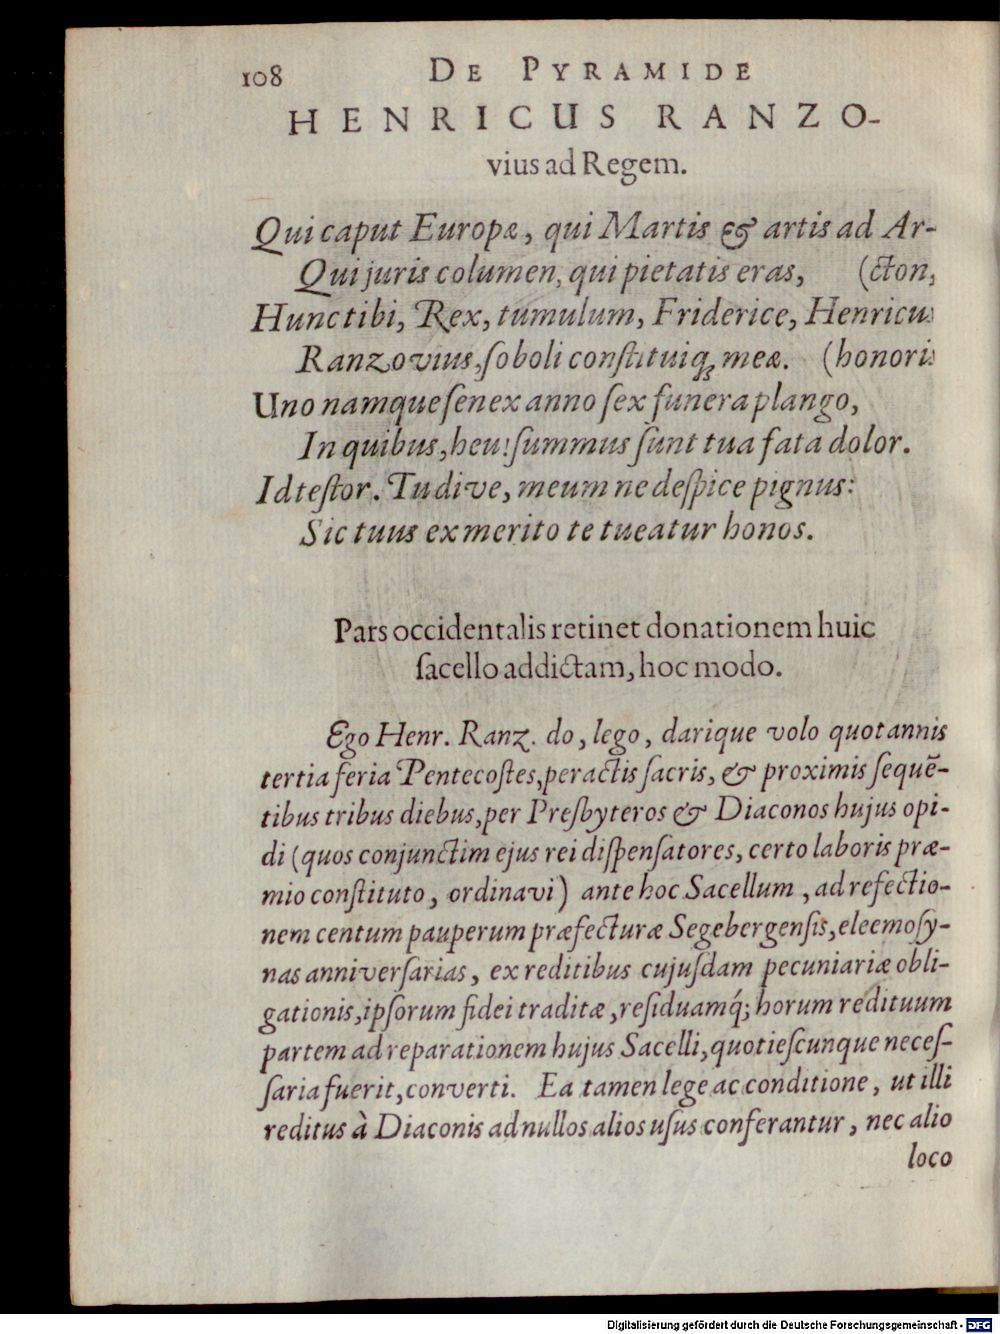 108 DE PYRAMIDE
HENRICUS RANZO-
vius ad Regem.
Qui caput Europæ, qui Martis & artis ad Ar-
Qui juris columen, qui pietatis eras, (cton,
Hunc tibi, Rex, tumulum, Friderice, Henricus
Ranzovius, ſoboli conſtituiq; meæ. (honoris
Uno namque ſenex anno ſex funera plango,
In quibus, heu! ſummus ſunt tua fata dolor.
Id teſtor. Tu dive, meum ne deſpice pignus:
Sic tuus ex merito te tueatur honos.
Pars occidentalis retinet donationem huic
ſacello addictam, hoc modo.
Ego Henr. Ranz. do, lego, darique volo quotannis
tertia feria Pentecoſtes, peractis ſacris, & proximis ſequē-
tibus tribus diebus, per Preſbyteros & Diaconos hujus opi-
di (quos conjunctim ejus rei diſpenſatores, certo laboris præ-
mio conſtituto, ordinavi) ante hoc Sacellum, ad refectio-
nem centum pauperum præfecturæ Segebergenſis, eleemoſy-
nas anniverſarias, ex reditibus cujuſdam pecuniariæ obli-
gationis, ipſorum fidei traditæ, reſiduamq́; horum redituum
partem ad reparationem hujus Sacelli, quotieſcunque neceſ-
ſaria fuerit, converti. Ea tamen lege ac conditione, ut illi
reditus à Diaconis ad nullos alios uſus conferantur, nec alio
loco
Digitalisierung gefördert durch die Deutsche Forschungsgemeinschaft - DFG